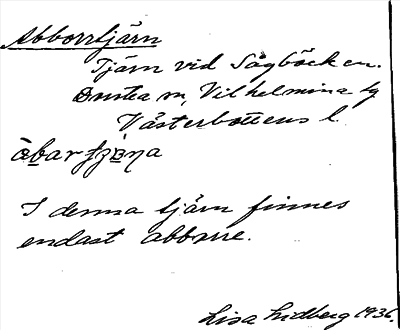 Abborrtjärn
Tjärn vid Sågbäcken.
Vilhelmina sg
Västerbottens l.
I denna tjärn finnes
endast abborre.
Lisa Lidberg 1936.